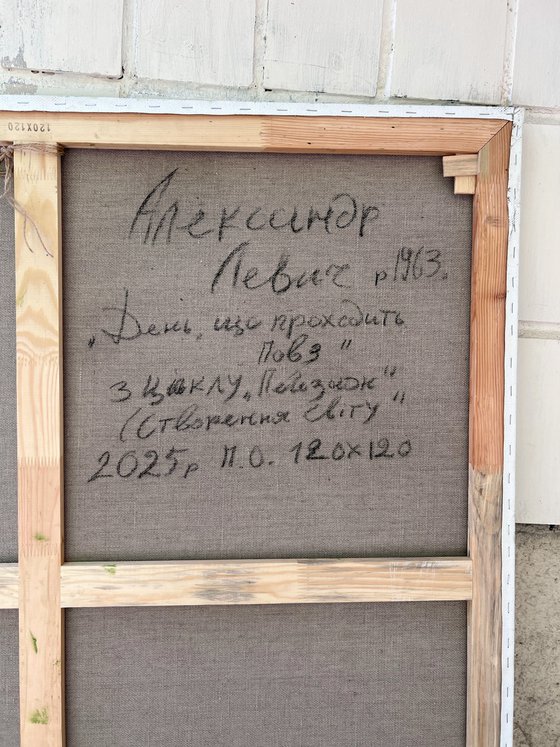 120X120
Александр
Левич р 1963.
„День, що проходить
повз"
з циклу „Пейзаж"
(Створення світу"
2025р П.О. 120х120